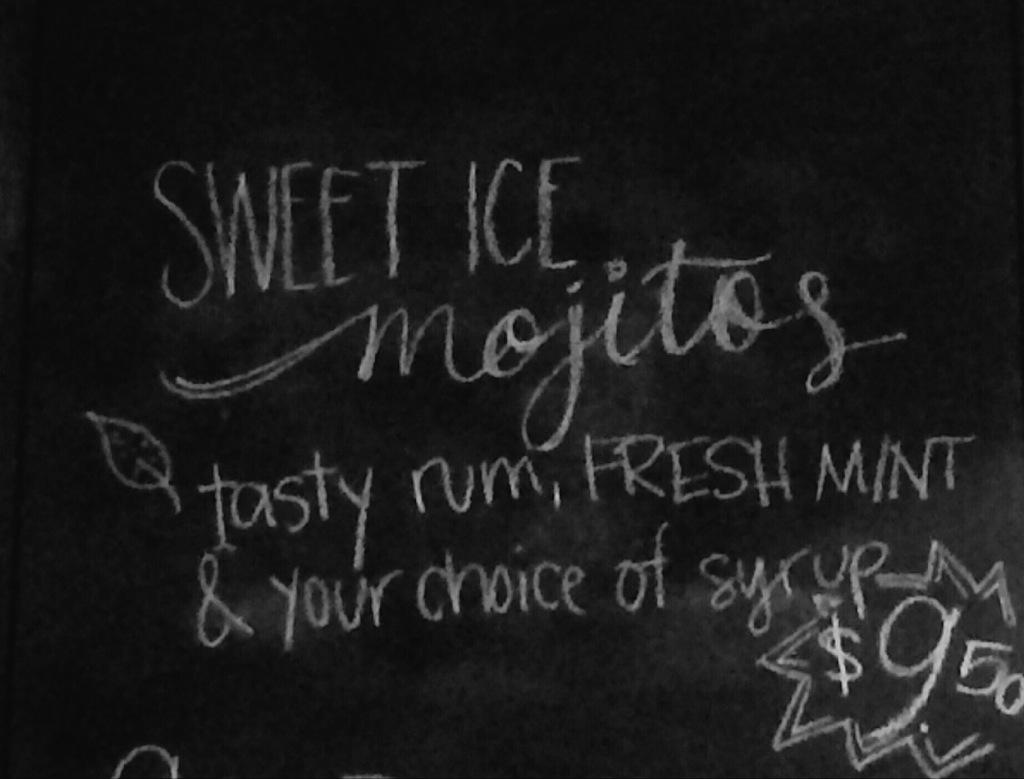 SWEET ICE
mojitos
tasty rum, FRESH MINT
& your choice of syrup
$950